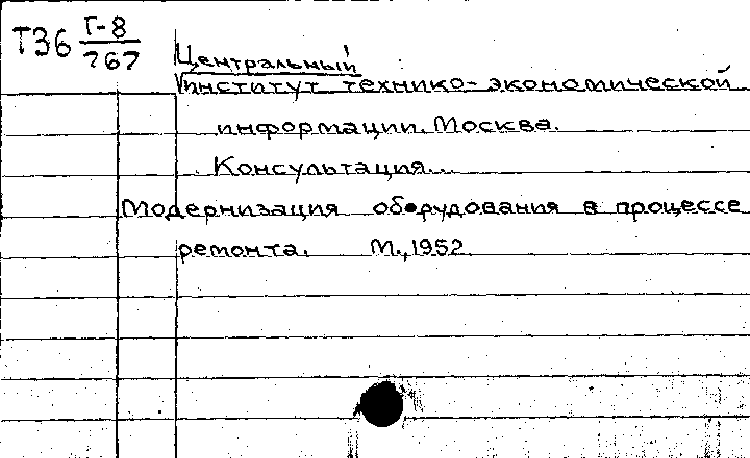 Т36 Г-8
767
Центральный
институт технико-экономической
информации. Москва.
Консультация...
Модернизация оборудования в процессе
ремонта. М., 1952